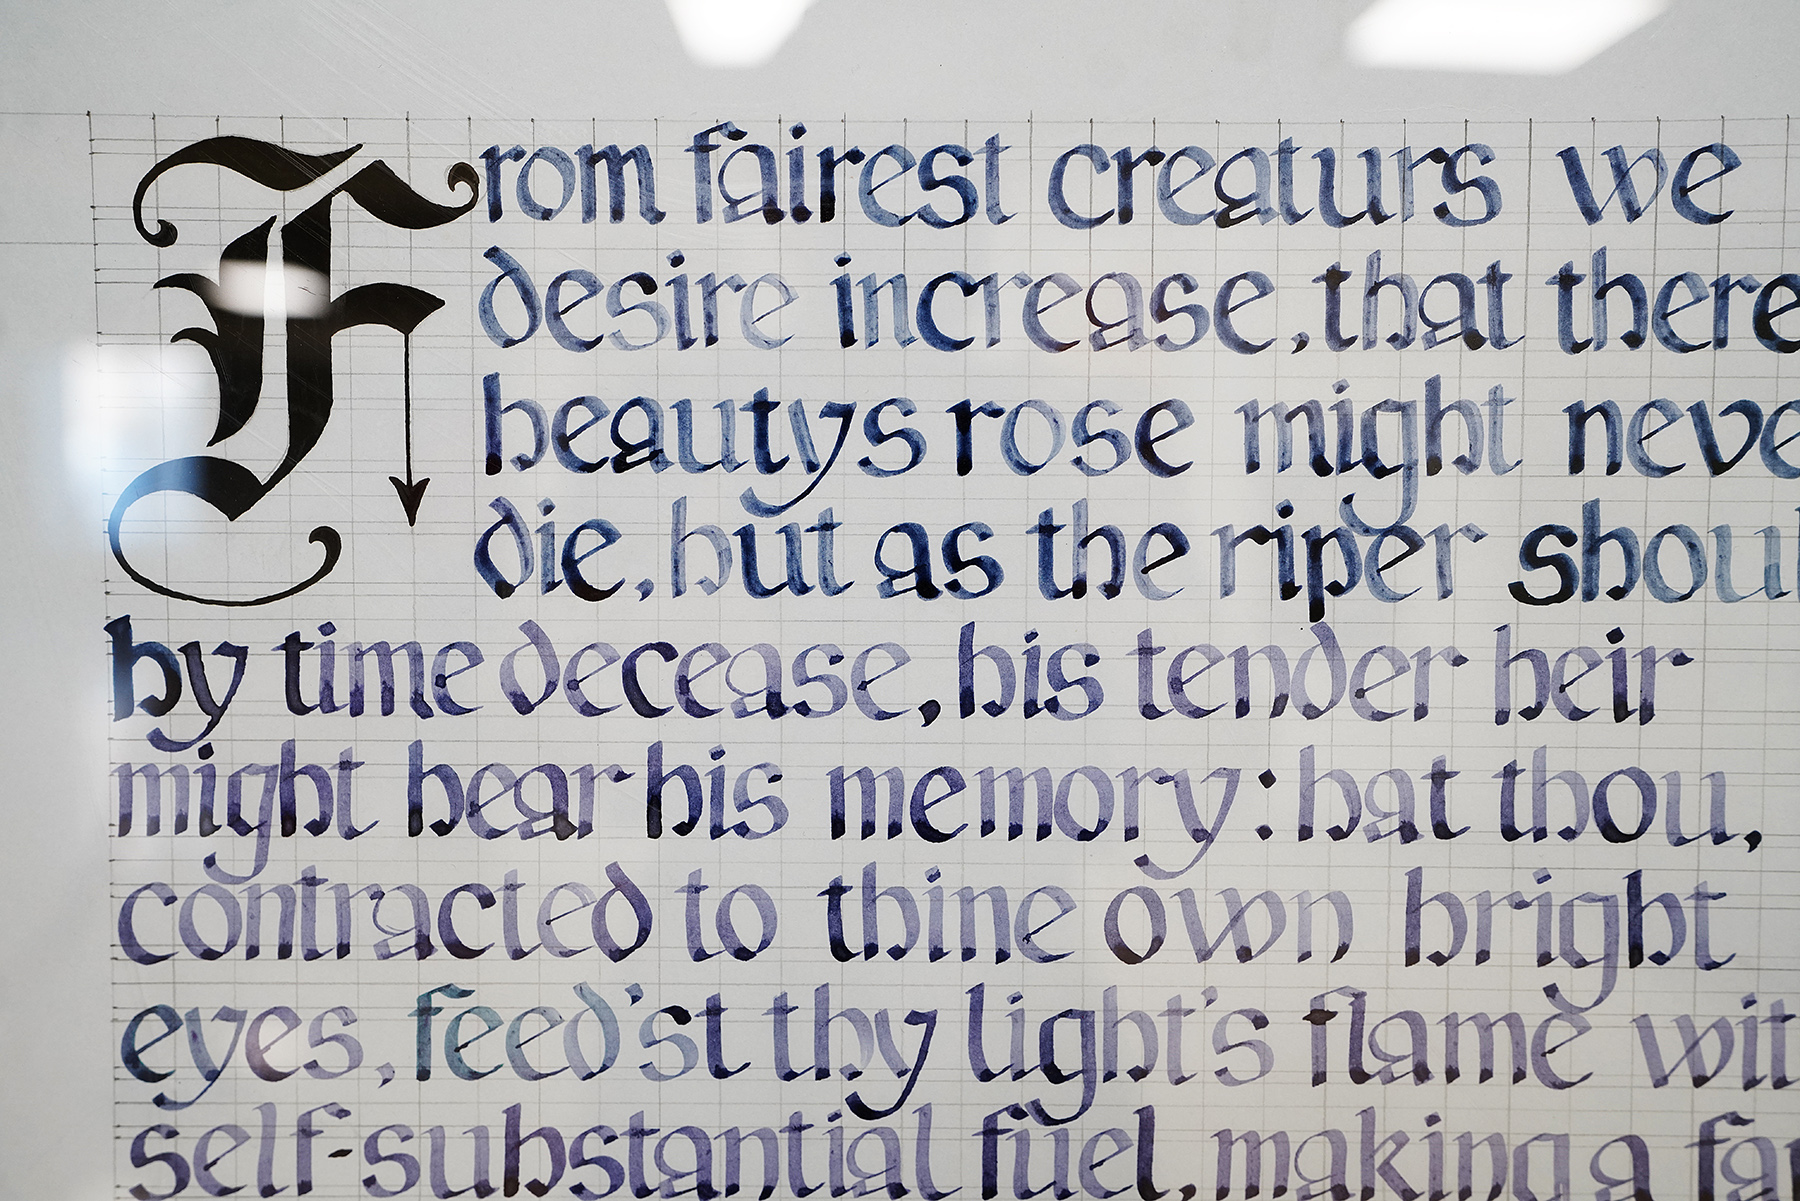 From fairest creaturs we
desire increase, that there
beautys rose might neve
die, but as the riper shoul
by time decease, his tender heir
might bear his memory: bat thou,
contracted to thine own bright
eyes, feed'st thy light's flame wit
self-substantial fuel, making a fa